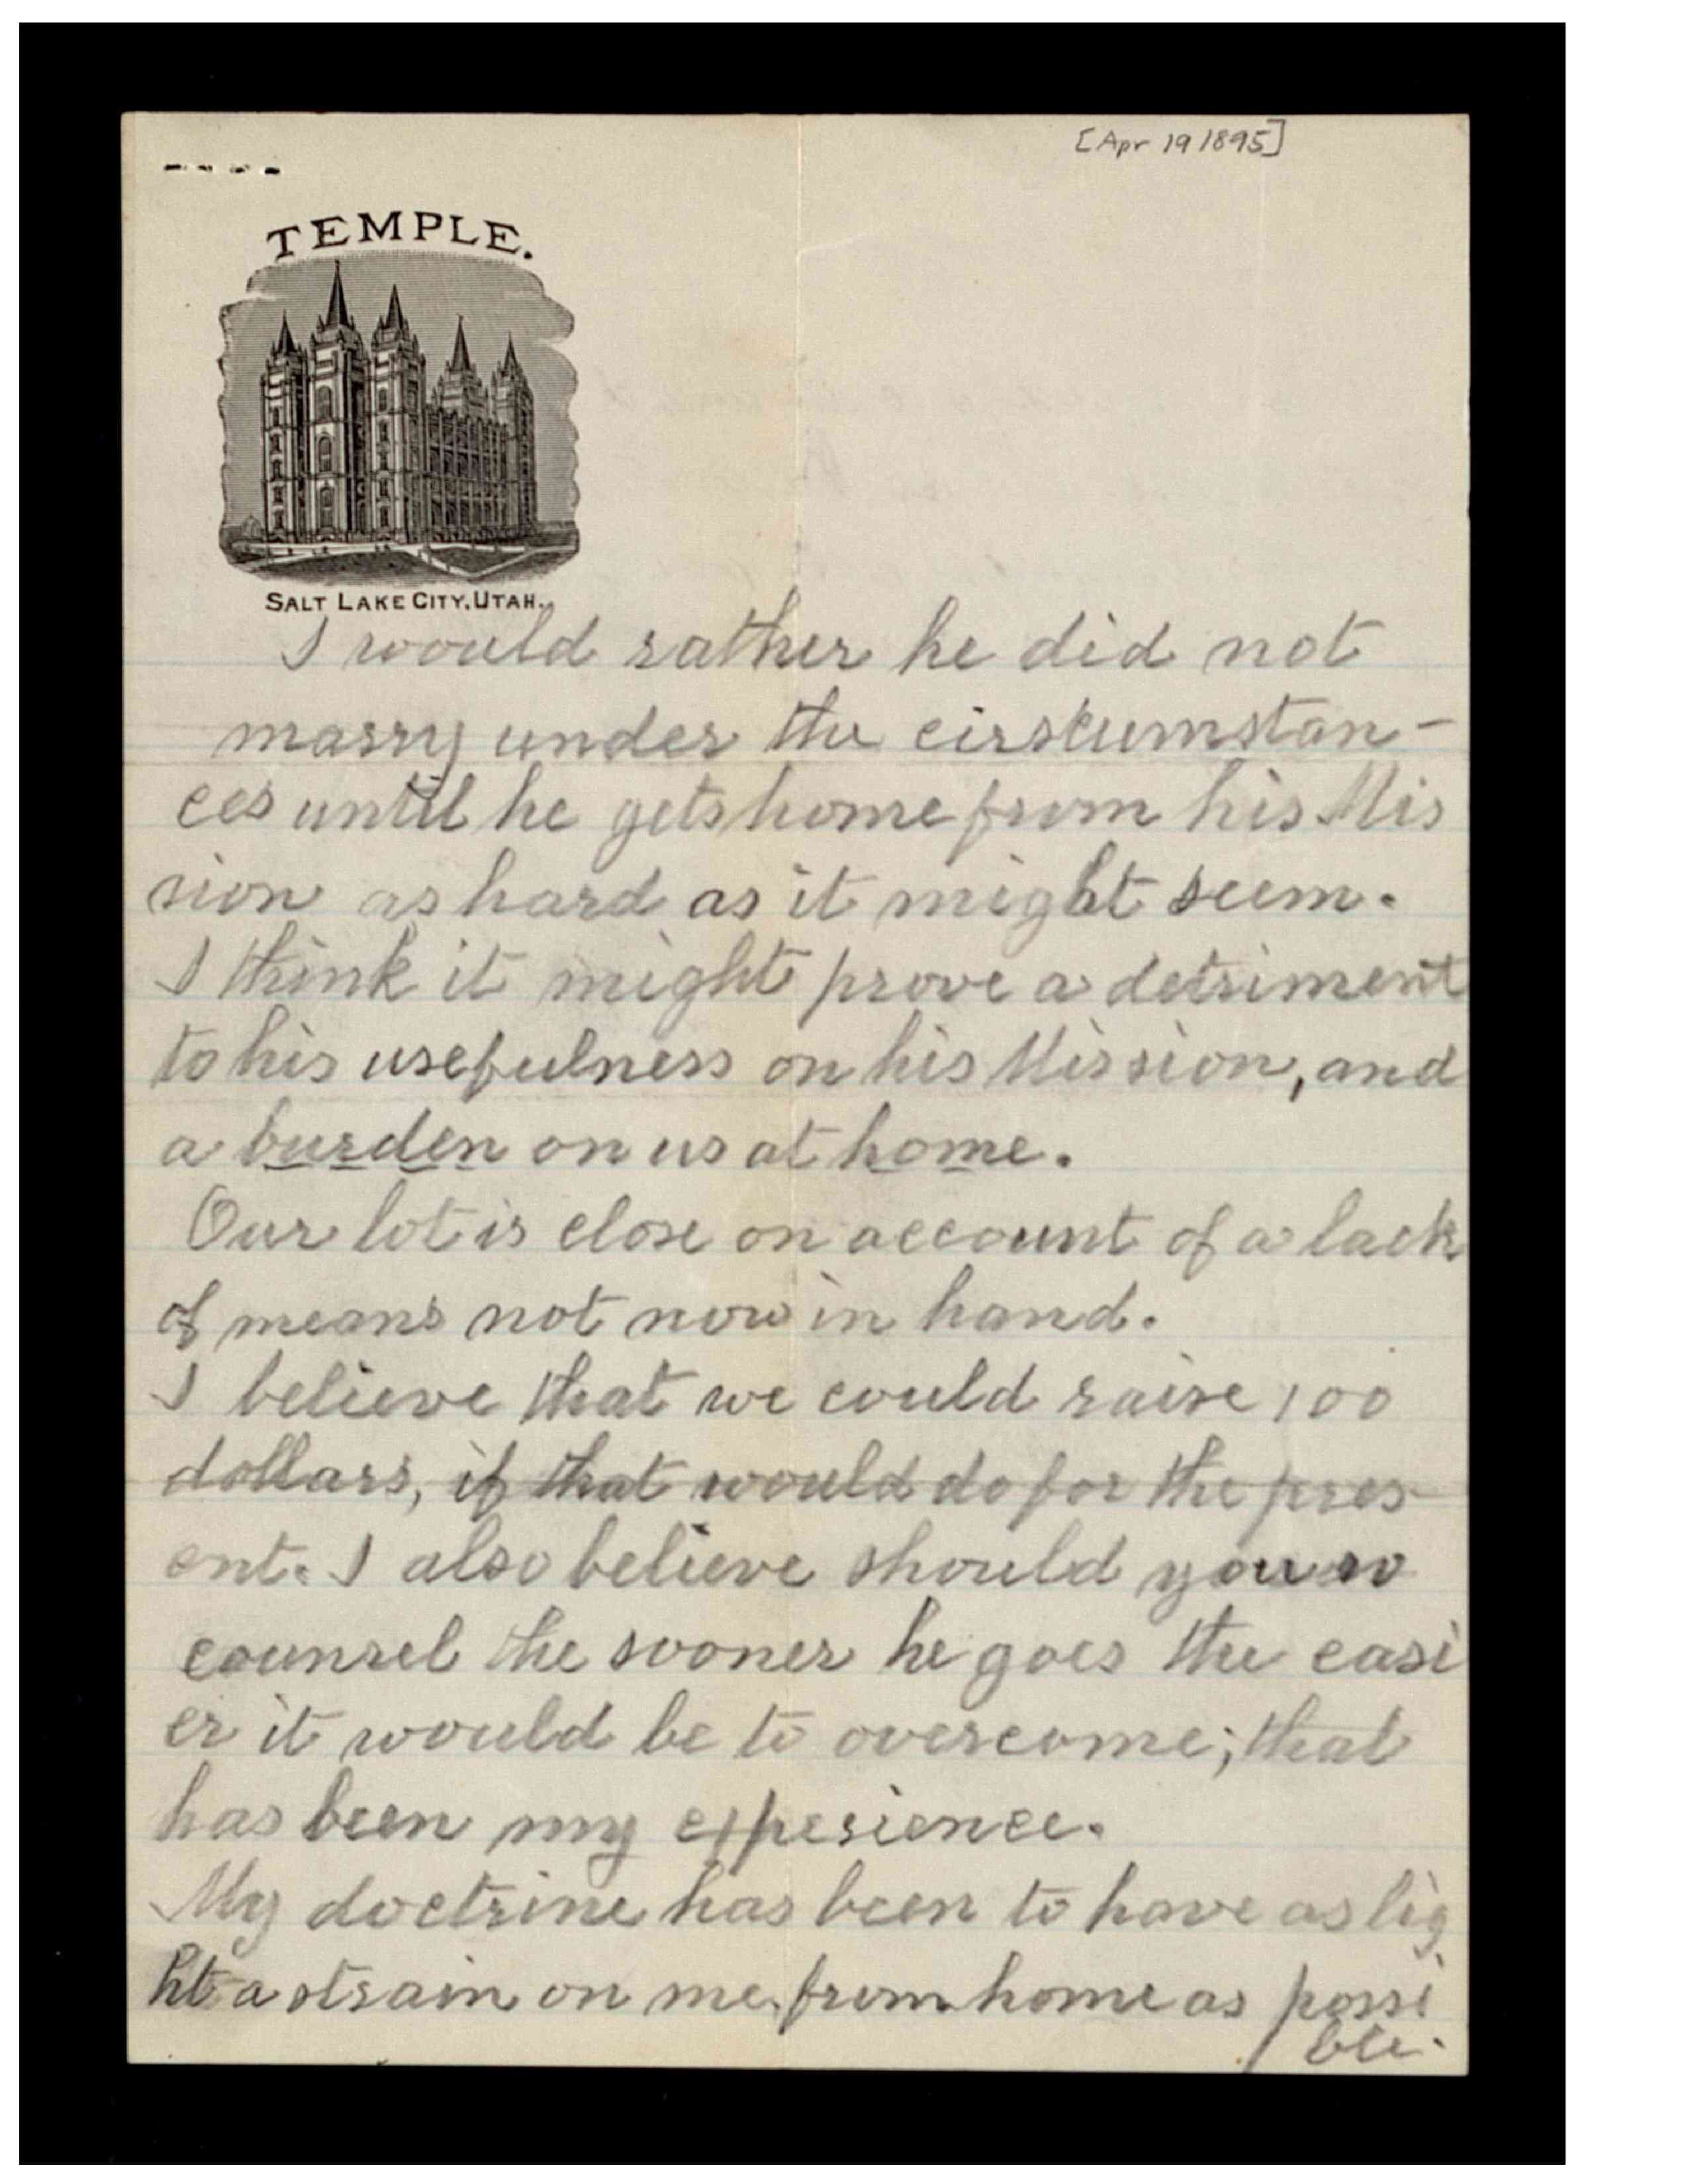 [Apr 19 1895]
TEMPLE.
SALT LAKE CITY, UTAH.
I would rather he did not
marry under the circkumstan-
ces until he gets home from his Mis
sion as hard as it might seem.
I think it might prove a detriment
to his usefulness on his Mission, and
a burden on us at home.
Our lot is close on account of a lack
of means not now in hand.
I believe that we could raise 100
dollars, if that would do for the pres-
ent. I also believe should you so
counsel the sooner he goes the easi
er it would be to overcome; that
has been my experience.
My doctrine has been to have as lig
ht a strain on me from home as possi
ble.